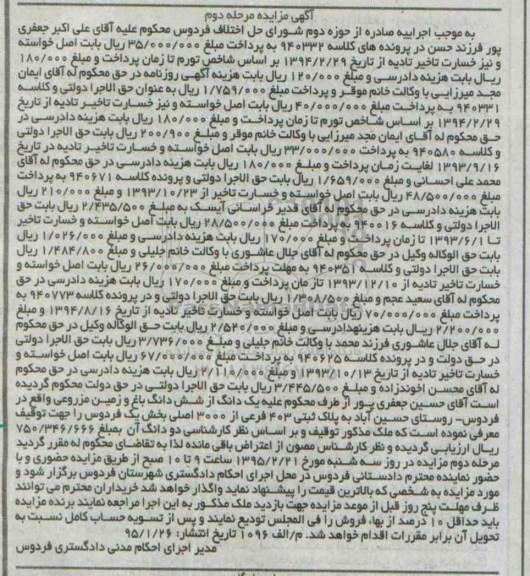 آگهی مزایده مرحله دوم
به موجب اجراییه صادره از حوزه دوم شورای حل اختلاف فردوس محکوم علیه آقای علی اکبر جعفری
پور فرزند حسن در پرونده های کلاسه ۹۴۰۳۳۲ به پرداخت مبلغ ۳۵/۰۰۰/۰۰۰ ریال بابت اصل خواسته
و نیز خسارت تاخیر تادیه از تاریخ ۱۳۹۴/۲/۲۹ بر اساس شاخص تورم تا زمان پرداخت و مبلغ ۱۸۰/۰۰۰
ریال بابت هزینه دادرسی و مبلغ ۱۲۰/۰۰۰ ریال بابت هزینه آگهی روزنامه در حق محکوم له آقای ایمان
مجد میرزایی با وکالت خانم موقر و پرداخت مبلغ ۱/۷۵۹/۰۰۰ ریال به عنوان حق الاجرا دولتی و کلاسه
۹۴۰۳۳۱ به پرداخت مبلغ ۴۰/۰۰۰/۰۰۰ ریال بابت اصل خواسته و نیز خسارت تاخیر تادیه از تاریخ
۱۳۹۴/۲/۲۹ بر اساس شاخص تورم تا زمان پرداخت و مبلغ ۱۸۰/۰۰۰ ریال بابت هزینه دادرسی در
حق محکوم له آقای ایمان مجد میرزایی با وکالت خانم موقر و مبلغ ۲۰۰/۹۰۰ ریال بابت حق الاجرا دولتی
و کلاسه ۹۴۰۵۸۰ به پرداخت ۳۳/۰۰۰/۰۰۰ ریال بابت اصل خواسته و خسارت تاخیر تادیه در تاریخ
۱۳۹۳/۹/۱۶ لغایت زمان پرداخت و مبلغ ۱۸۰/۰۰۰ ریال بابت هزینه دادرسی در حق محکوم له آقای
محمد علی احسانی و مبلغ ۱/۶۵۹/۰۰۰ ریال بابت حق الاجرا دولتی و پرونده کلاسه ۹۴۰۶۷۱ به پرداخت
مبلغ ۴۸/۵۰۰/۰۰۰ ریال بابت اصل خواسته و خسارت تاخیر از ۱۳۹۳/۱۰/۲۳ و مبلغ ۲۱۰/۰۰۰ ریال
بابت هزینه دادرسی در حق محکوم له آقای قدیر خراسانی آیسک به مبلغ ۲/۴۳۵/۵۰۰ ریال بابت حق
الاجرا دولتی و کلاسه ۹۴۰۰۱۶ به پرداخت مبلغ ۲۸/۵۰۰/۰۰۰ ریال بابت اصل خواسته و خسارت تاخیر
تا ۱۳۹۳/۶/۱ تا زمان پرداخت و مبلغ ۱۷۰/۰۰۰ ریال بابت هزینه دادرسی و مبلغ ۱/۰۲۶/۰۰۰ ریال
بابت حق الوکاله وکیل در حق محکوم له آقای جلال عاشوری با وکالت خانم جلیلی و مبلغ ۱/۴۸۴/۸۰۰ ریال
بابت حق الاجرا دولتی و کلاسه ۹۴۰۳۵۱ به مهلت پرداخت مبلغ ۲۶/۰۰۰/۰۰۰ ریال بابت اصل خواسته و
خسارت تاخیر تادیه از ۱۳۹۳/۱۲/۱۰ تا زمان پرداخت و مبلغ ۱۷۰/۰۰۰ ریال بابت هزینه دادرسی در حق
محکوم له آقای سعید عجم و مبلغ ۱/۳۰۸/۵۰۰ ریال بابت حق الاجرا دولتی و در پرونده کلاسه ۹۴۰۷۷۳ به
پرداخت مبلغ ۷۰/۰۰۰/۰۰۰ ریال بابت اصل خواسته و خسارت تاخیر تادیه از تاریخ ۱۳۹۴/۸/۱۶ و مبلغ
۲/۲۰۰/۰۰۰ ریال بابت هزینهدادرسی و مبلغ ۲/۵۲۰/۰۰۰ ریال بابت حق الوکاله وکیل در حق محکوم
له آقای جلال عاشوری فرزند محمد با وکالت خانم جلیلی و مبلغ ۳/۷۳۶/۰۰۰ ریال بابت حق الاجرا دولتی
در حق دولت و در پرونده کلاسه ۹۴۰۶۲۵ به پرداخت مبلغ ۶۷/۰۰۰/۰۰۰ ریال بابت اصل خواسته و
خسارت تاخیر تادیه از تاریخ ۱۳۹۳/۱۰/۱۳ و مبلغ ۲/۱۱۰/۰۰۰ ریال بابت هزینه دادرسی در حق محکوم
له آقای محسن اخوندزاده و مبلغ ۳/۴۴۵/۵۰۰ ریال بابت حق الاجرا دولتی در حق دولت محکوم گردیده
است آقای حسین جعفری پور از طرف محکوم علیه یک دانگ از شش دانگ باغ و زمین مزروعی واقع در
فردوس- روستای حسین آباد به پلاک ثبتی ۴۰۳ فرعی از ۳۰۰۰ اصلی بخش یک فردوس را جهت توقیف
معرفی نموده است که ملک مذکور توقیف و بر اساس نظر کارشناسی دو دانگ آن بمبلغ ۷۵۰/۳۴۶/۶۶۶
ریال ارزیابی گردیده و نظر کارشناس مصون از اعتراض باقی مانده لذا به تقاضای محکوم له مقرر گردید
مرحله دوم مزایده در روز سه شنبه مورخ ۱۳۹۵/۲/۲۱ ساعت ۹ تا ۱۰ صبح از طریق مزایده حضوری و با
حضور نماینده محترم دادستانی فردوس در محل اجرای احکام دادگستری شهرستان فردوس برگزار شود و
مورد مزایده به شخصی که بالاترین قیمت را پیشنهاد نماید واگذار خواهد شد خریداران محترم می توانند
ظرف مهلت پنج روز قبل از موعد مزایده جهت بازدید ملک مذکور به این اجرا مراجعه نمایند برنده مزایده
باید حداقل ۱۰ درصد از بها، فروش را فی المجلس تودیع نمایند و پس از تسویه حساب کامل نسبت به
تحویل آن برابر مقررات اقدام خواهد شد. م/الف ۱۰۹۶ تاریخ انتشار: ۹۵/۱/۲۶
مدیر اجرای احکام مدنی دادگستری فردوس